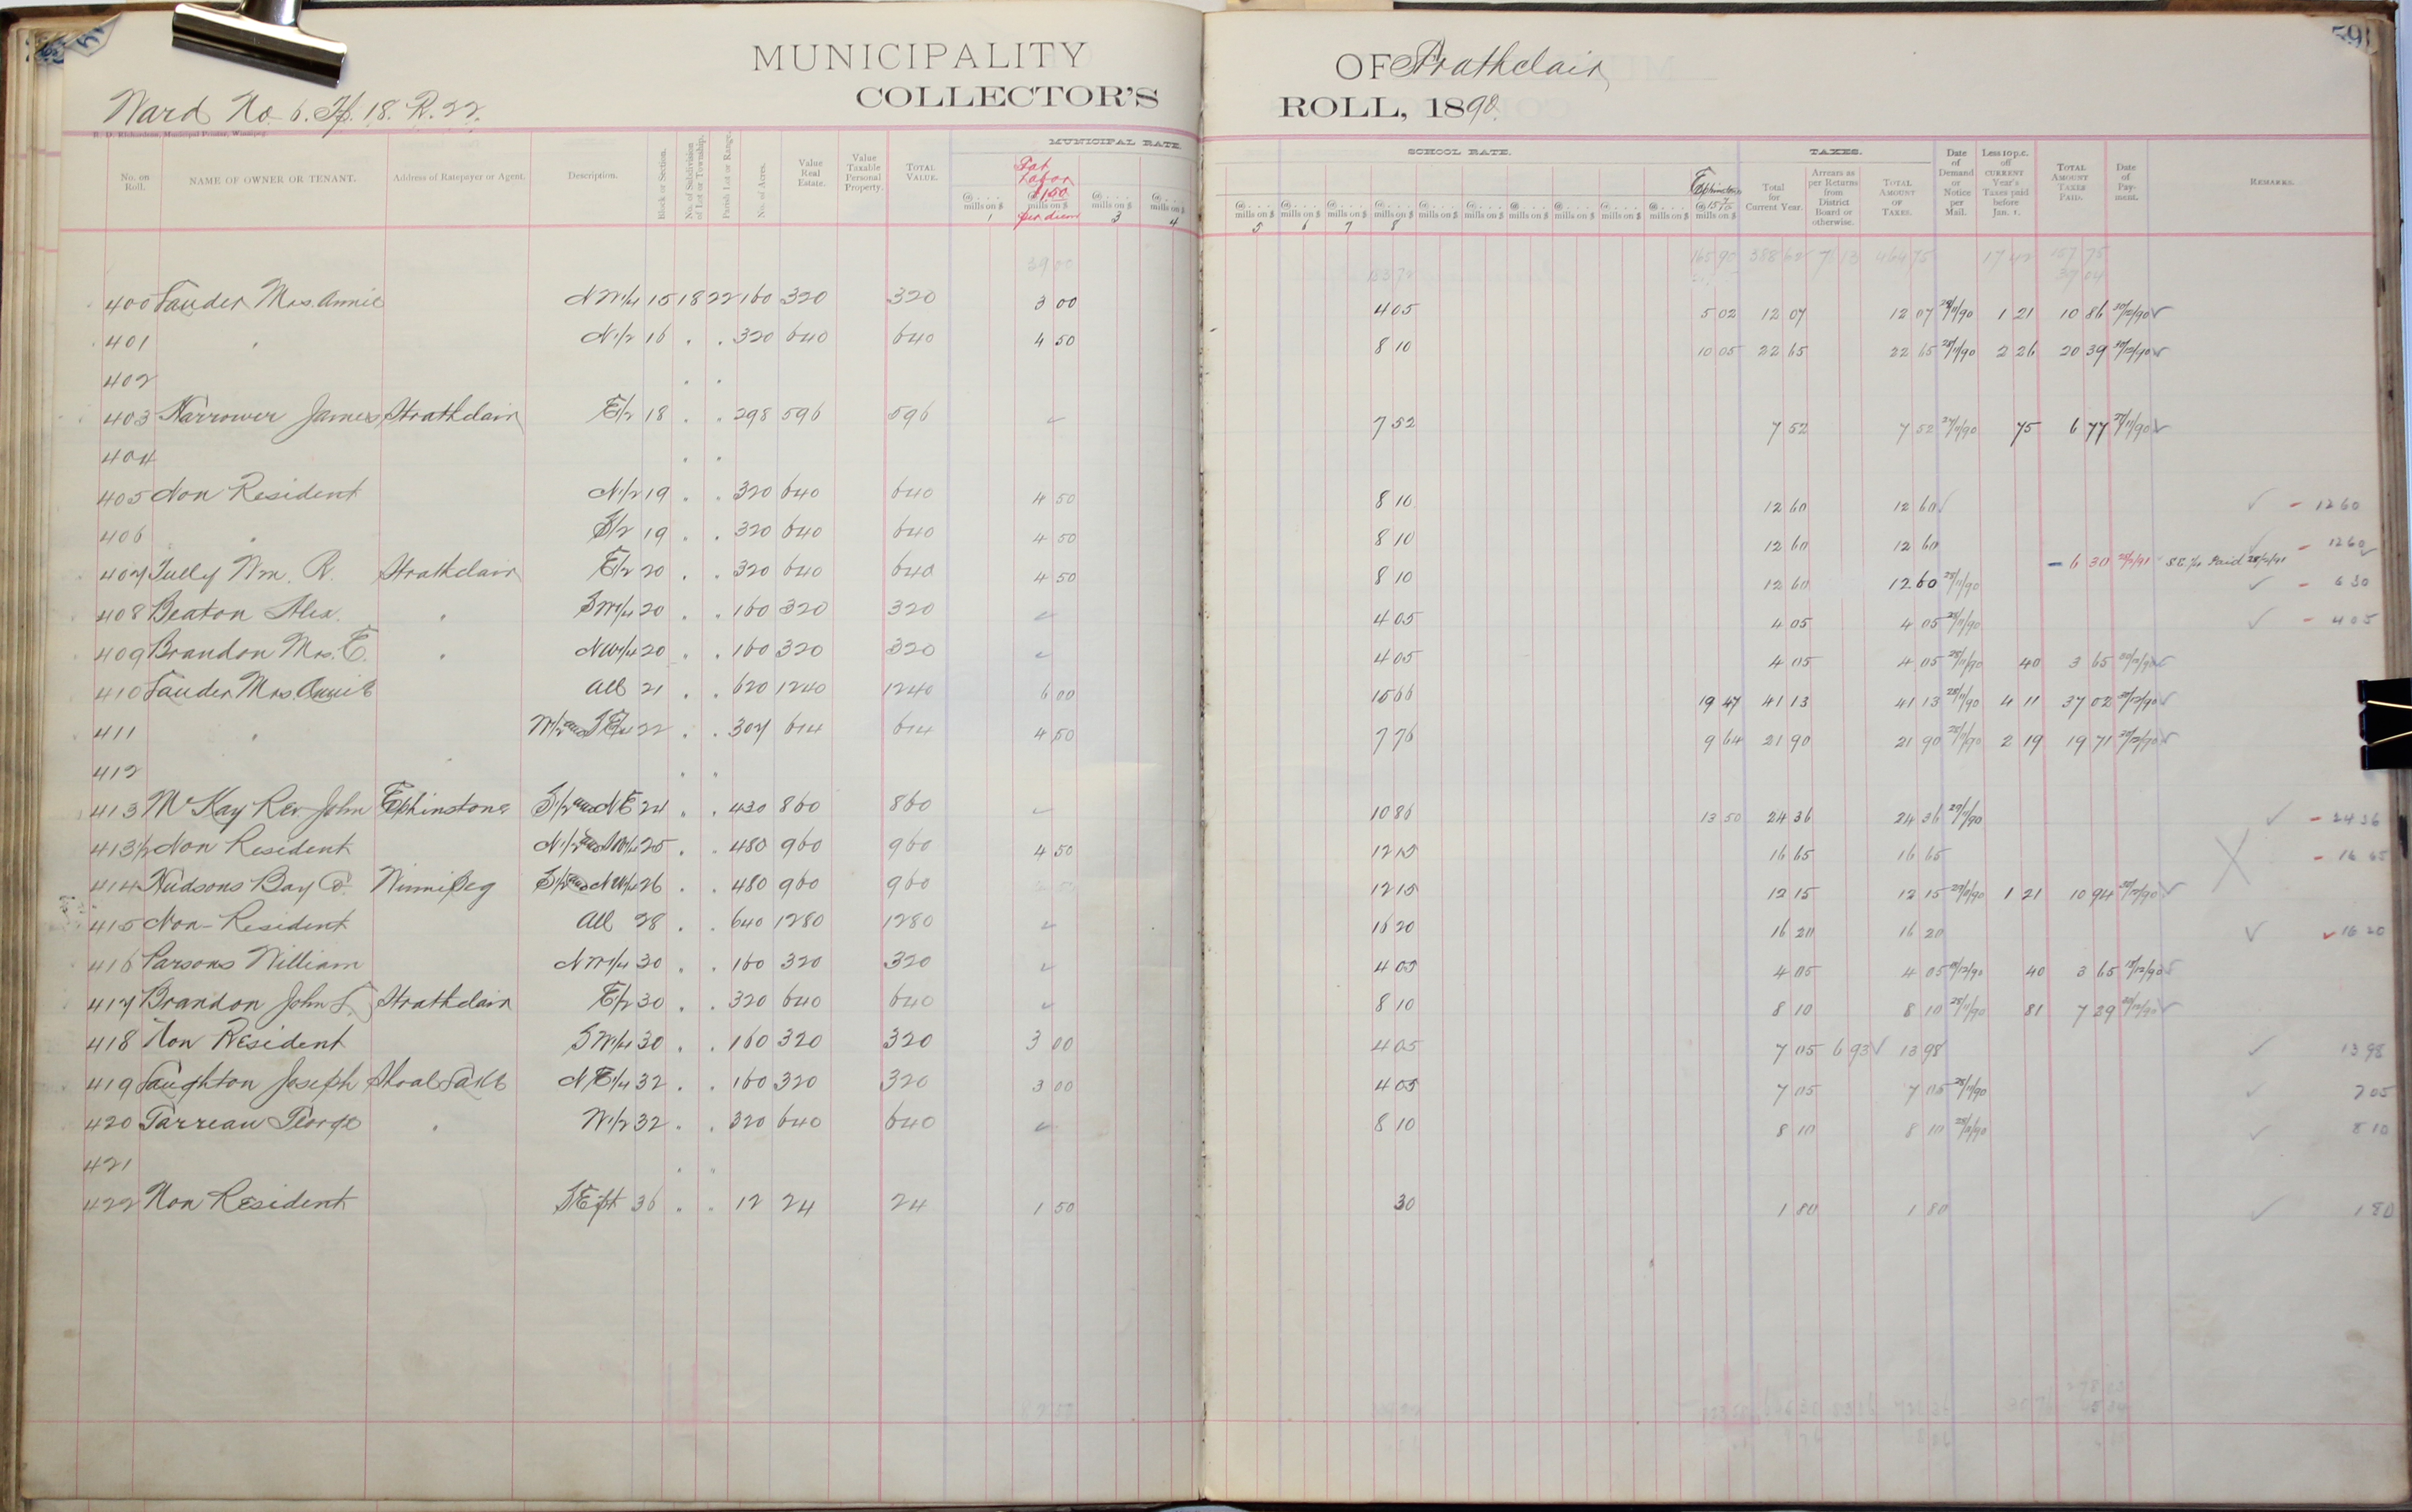 MUNICIPALITY OF Strathclair
COLLECTOR'S ROLL, 1890.
59
Ward No. 6. Tp. 18. R. 22.
R. D. Richardson, Municipal Printer, Winnipeg.
MUNICIPAL RATE. SCHOOL RATE. TAXES.
No. on Roll. NAME OF OWNER OR TENANT. Address of Ratepayer or Agent. Description. Block or Section. No. of Subdivision of Lot or Township. Parish Lot or Range. No. of Acres. Value Real Estate. Value Taxable Personal Property. TOTAL VALUE. @ . . . . mills on $ 1 Stat Labor $1.50 per diem @ . . . . mills on $ 3 @ . . . . mills on $ 4 @ . . . . mills on $ 5 @ . . . . mills on $ 6 @ . . . . mills on $ 7 @ . . . . mills on $ 8 Elphinstone @ 15 7/10 mills on $ Total for Current Year. Arrears as per Returns from District Board or otherwise. TOTAL AMOUNT OF TAXES. Date of Demand or Notice per Mail. Less 10 p.c. off CURRENT Year's Taxes paid before Jan. 1. TOTAL AMOUNT TAXES PAID. Date of Payment. REMARKS.
39 00 165 90 388 62 7 13 464 75 17 42 157 75
37 04
400 Lauder Mrs. Annie N W 1/4 15 18 22 160 320 320 3 00 4 05 5 02 12 07 12 07 28/11/90 1 21 10 86 30/12/90 ✓
401 " N 1/2 16 " " 320 640 640 4 50 8 10 10 05 22 65 22 65 28/11/90 2 26 20 39 30/12/90 ✓
402 " "
403 Harrower James Strathclair E 1/2 18 " " 298 596 596 ✓ 7 52 7 52 7 52 27/11/90 75 6 77 27/11/90 ✓
404 " "
405 Non Resident N 1/2 19 " " 320 640 640 4 50 8 10 12 60 12 60 ✓ ✓ - 12 60
406 " S 1/2 19 " " 320 640 640 4 50 8 10 12 60 12 60 ✓ - 12 60
407 Tully Wm. R. Strathclair E 1/2 20 " " 320 640 640 4 50 8 10 12 60 12 60 28/11/90 - 6 30 S.E. 1/4 Paid ✓ - 6 30
408 Beaton Alex. " S W 1/4 20 " " 160 320 320 ✓ 4 05 4 05 4 05 28/11/90 ✓ - 4 05
409 Brandon Mrs. E. " N W 1/4 20 " " 160 320 320 ✓ 4 05 4 05 4 05 28/11/90 40 3 65 30/12/90 ✓
410 Lauder Mrs. Annie All 21 " " 620 1240 1240 6 00 15 66 19 47 41 13 41 13 28/11/90 4 11 37 02 30/12/90 ✓
411 " W 1/2 and S E 1/4 22 " " 307 614 614 4 50 7 76 9 64 21 90 21 90 28/11/90 2 19 19 71 30/12/90 ✓
412 " "
413 McKay Rev. John Elphinstone S 1/2 and N E 24 " " 430 860 860 ✓ 10 86 13 50 24 36 24 36 29/11/90 ✓ - 24 36
413 1/2 Non Resident N 1/2 and S W 1/4 25 " " 480 960 960 4 50 12 15 16 65 16 65 X - 16 65
414 Hudsons Bay Co. Winnipeg S 1/2 and N W 1/4 26 " " 480 960 960 12 15 12 15 12 15 29/11/90 1 21 10 94 ✓
415 Non-Resident All 28 " " 640 1280 1280 ✓ 16 20 16 20 16 20 ✓ ✓ 16 20
416 Parsons William N W 1/4 30 " " 160 320 320 ✓ 4 05 4 05 4 05 40 3 65 ✓
417 Brandon John L. Strathclair E 1/2 30 " " 320 640 640 ✓ 8 10 8 10 8 10 28/11/90 81 7 29 30/12/90 ✓
418 Non Resident S W 1/4 30 " " 160 320 320 3 00 4 05 7 05 6 93 ✓ 13 98 ✓ 13 98
419 Laughton Joseph Shoal Lake N E 1/4 32 " " 160 320 320 3 00 4 05 7 05 7 05 28/11/90 ✓ 7 05
420 Tarreau George " W 1/2 32 " " 320 640 640 ✓ 8 10 8 10 8 10 28/11/90 ✓ 8 10
421 " "
422 Non Resident S E pt 36 " " 12 24 24 1 50 30 1 80 1 80 ✓ 1 80